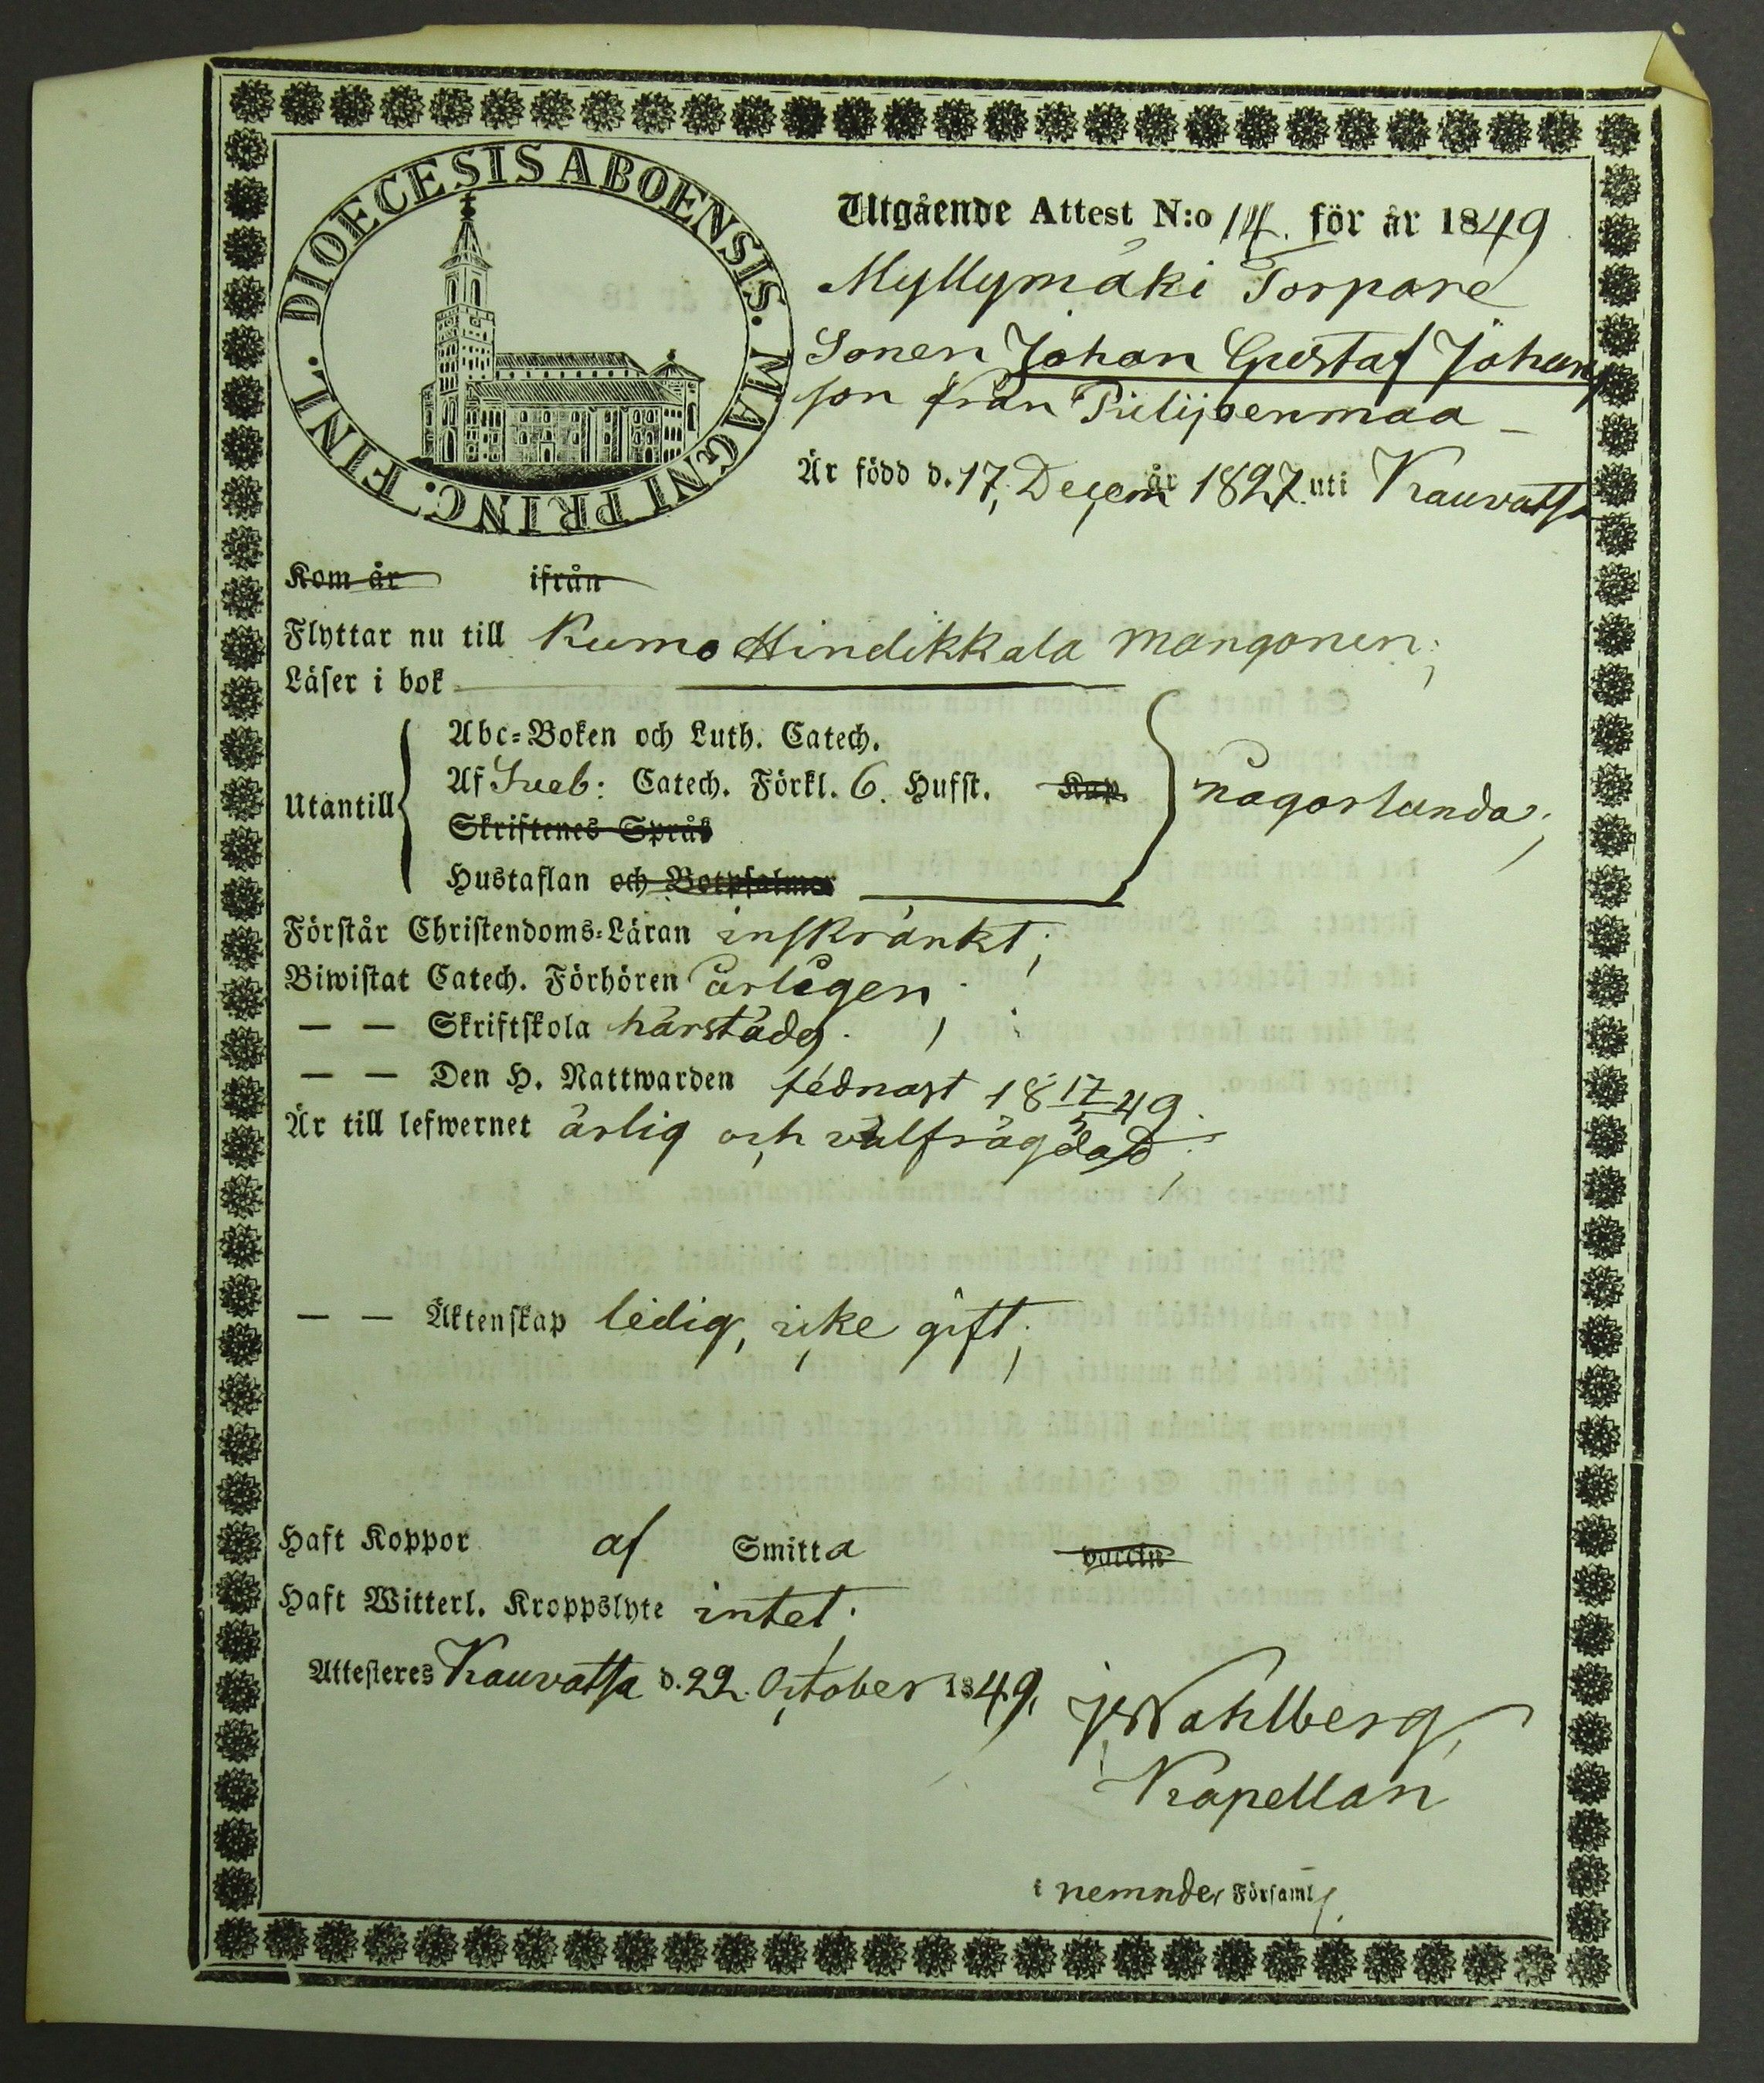 DIOECESIS ABOENSIS. MAGNI PRINC. FINL.
Utgående Attest N:o 14. för år 1849
Myllymäki Torpare
Sonen Johan Gustaf Johans
son från Piilijoenmaa
Är född d. 17, Decem år 1827 uti Kauvatsa
Kom år ifrån
Flyttar nu till Kumo Hindikkala Mangonen;
Läser i bok
Abc-Boken och Luth. Catech.
Utantill Af Sveb: Catech. Förkl. 6. Hufst. Kap. någorlunda;
Skriftenes Språk
Hustaflan och Botpsalmer
Förstår Christendoms-Läran inskränkt;
Biwistat Catech. Förhören årligen;
— — Skriftskola härstädes.
— — Den H. Nattwarden sednast 18 17/5 49.
Är till lefwernet ärlig och välfrägdad;
— — Äktenskap ledig, icke gift;
Haft Koppor af Smitta vaccin
Haft Witterl. Kroppslyte intet;
Attesteres Kauvatsa d. 22. October 1849. J. Wahlberg,
Kapellan
i nemnde Församl.